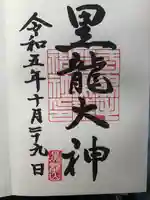 黒龍大神
令和五年十月二十九日